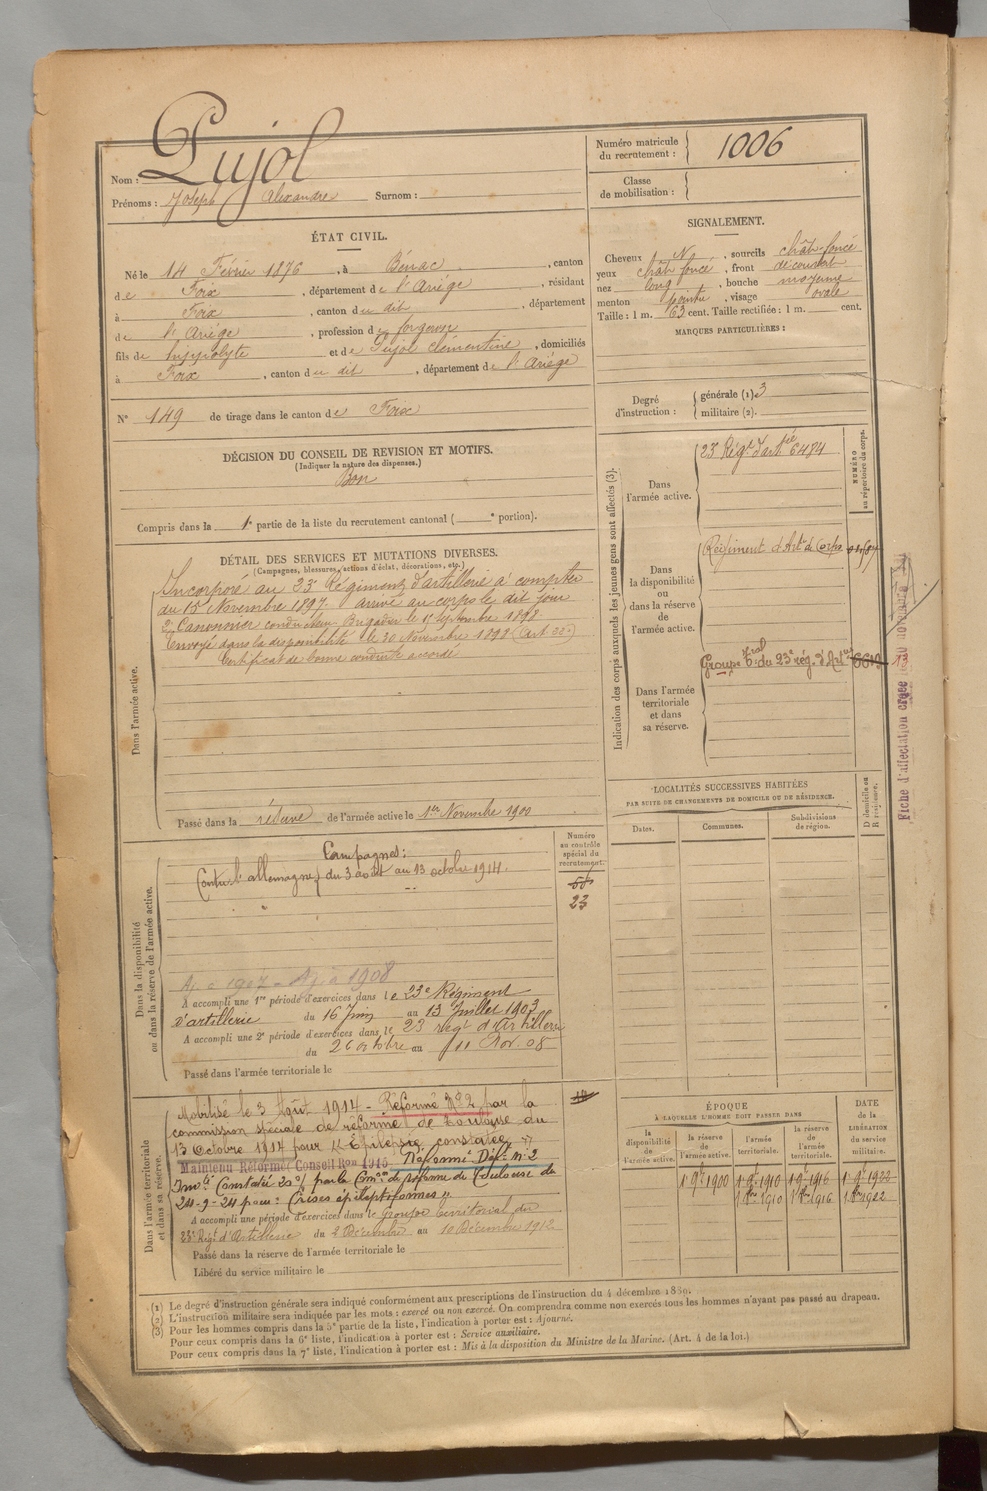 Nom : Pujol
Prénoms : Joseph Alexandre Surnom :
Numéro matricule du recrutement : 1006
Classe de mobilisation :
ÉTAT CIVIL.
Né le 14 Février 1876, à Bénac, canton
de Foix, département de l'Ariége, résidant
à Foix, canton du dit, département
de l'Ariége, profession de forgeron
fils de hyppolyte et de Pujol Clémentine, domiciliés
à Foix, canton du dit, département de l'Ariége
N° 149 de tirage dans le canton de Foix
SIGNALEMENT.
Cheveux N, sourcils chât-foncé
yeux chât foncé, front découvert
nez long, bouche moyenne
menton pointu, visage ovale
Taille : 1 m. 63 cent. Taille rectifiée : 1 m. cent.
MARQUES PARTICULIÈRES :
Degré d'instruction : générale (1) 3
militaire (2).
DÉCISION DU CONSEIL DE REVISION ET MOTIFS.
(Indiquer la nature des dispenses.)
Bon
Compris dans la 1e partie de la liste du recrutement cantonal ( e portion).
DÉTAIL DES SERVICES ET MUTATIONS DIVERSES.
(Campagnes, blessures, actions d'éclat, décorations, etc.)
Dans l'armée active.
Incorporé au 23e Régiment d'artillerie à compter
du 15 Novembre 1897. arrivé au corps le dit jour
2e Canonnier conducteur. Brigadier le 15 Septembre 1898
Envoyé dans la disponibilité le 30 Novembre 1898 (art. 22)
Certificat de bonne conduite accordé
Passé dans la réserve de l'armée active le 1er Novembre 1900
Indication des corps auxquels les jeunes gens sont affectés (3).
NUMÉRO au répertoire du corps.
Dans l'armée active.
23e Régt d'artie 6484
Dans la disponibilité ou dans la réserve de l'armée active.
Régiment d'Artie de Corps
Dans l'armée territoriale et dans sa réserve.
Groupe Trial du 23e rég. d'Artie 6619 13
Fiche d'affectation créée
LOCALITÉS SUCCESSIVES HABITÉES
PAR SUITE DE CHANGEMENTS DE DOMICILE OU DE RÉSIDENCE.
Dates. Communes. Subdivisions de région. D domicile ou R résidence.
Dans la disponibilité ou dans la réserve de l'armée active.
Numéro au contrôle spécial du recrutement.
Campagnes :
Contre l'allemagne, du 3 août au 13 octobre 1914.
23
Aj. à 1907 - Aj. à 1908
A accompli une 1re période d'exercices dans le 23e Régiment
d'artillerie du 16 Juin au 13 Juillet 1903
A accompli une 2e période d'exercices dans le 23 régt d'Artillerie
du 26 octobre au 11 Nov. 08
Passé dans l'armée territoriale le
Dans l'armée territoriale et dans sa réserve.
Mobilisé le 3 Août 1914 - Réformé N° 2 par la
commission spéciale de réforme de Toulouse du
13 Octobre 1914 pour "Epilepsie constatée"
Maintenu Réformé Conseil Ron 1915 Réformé Déf. n° 2
par la Comon de réforme de Toulouse du
24-9-24 pour : Crises épileptiformes".
A accompli une période d'exercices dans le Groupe territorial du
23e Régt d'Artillerie du 2 Décembre au 10 Décembre 1912
Passé dans la réserve de l'armée territoriale le
Libéré du service militaire le
ÉPOQUE
À LAQUELLE L'HOMME DOIT PASSER DANS
la disponibilité de l'armée active. la réserve de l'armée active. l'armée territoriale. la réserve de l'armée territoriale.
DATE de la LIBÉRATION du service militaire.
1 9e 1900 1 9e 1910 1 9e 1916 1 9e 1922
1 8bre 1910 1 8bre 1916 1 8bre 1922
(1) Le degré d'instruction générale sera indiqué conformément aux prescriptions de l'instruction du 4 décembre 1889.
(2) L'instruction militaire sera indiquée par les mots : exercé ou non exercé. On comprendra comme non exercés tous les hommes n'ayant pas passé au drapeau.
(3) Pour les hommes compris dans la 5e partie de la liste, l'indication à porter est : Ajourné.
Pour ceux compris dans la 6e liste, l'indication à porter est : Service auxiliaire.
Pour ceux compris dans la 7e liste, l'indication à porter est : Mis à la disposition du Ministre de la Marine. (Art. 4 de la loi.)